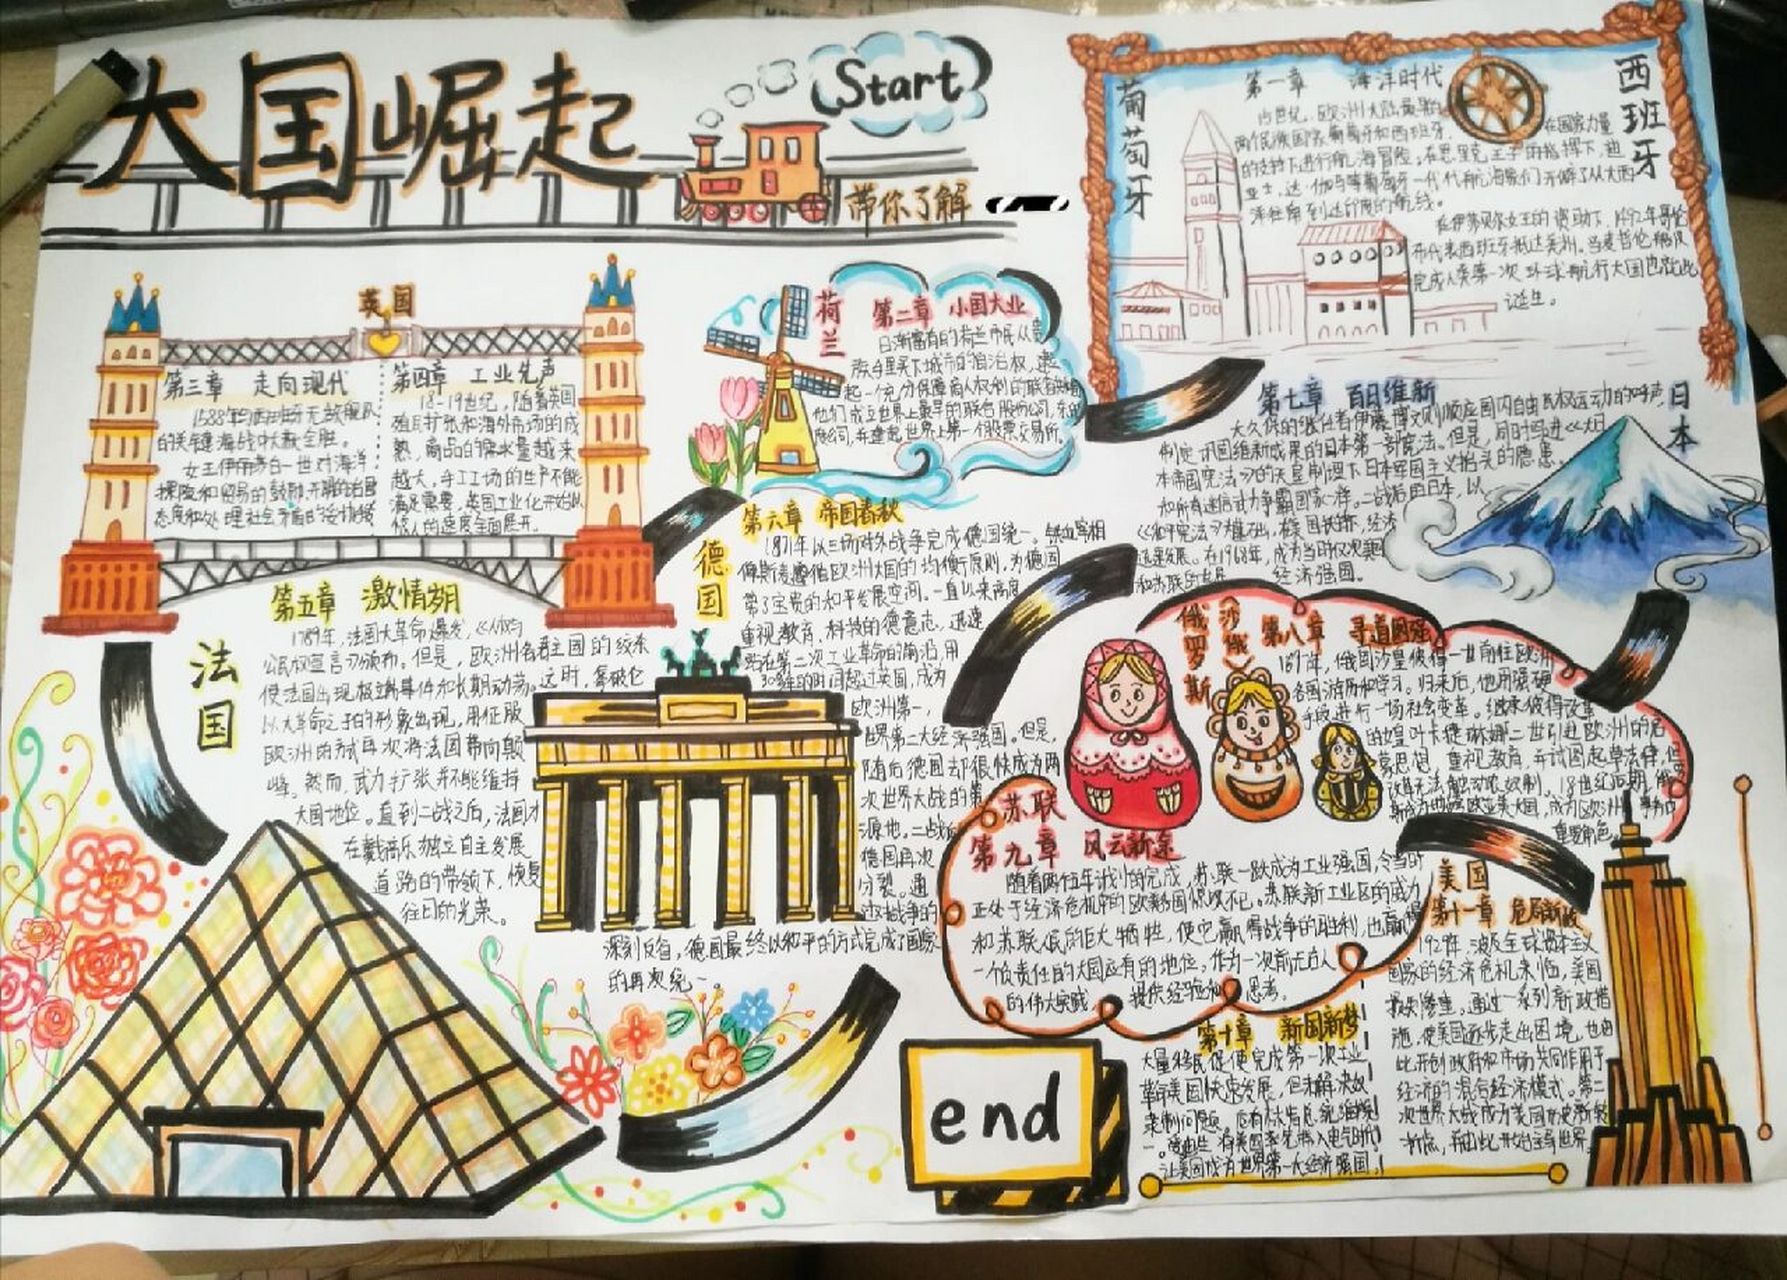 大国崛起
Start
带你了解
葡萄牙
西班牙
第一章 海洋时代
15世纪,欧洲大陆最早的
两个民族国家葡萄牙和西班牙,
在国家力量
的支持下进行航海冒险。在恩里克王子的指挥下,迪
亚士、达·伽马等葡萄牙一代代航海家们开辟了从大西
洋往南到达印度的航线。
在伊莎贝尔女王的资助下,1492年哥伦
布代表西班牙抵达美洲。当麦哲伦船队
完成人类第一次环球航行大国也就此
诞生。
荷兰
第二章 小国大业
日渐富有的荷兰市民从贵
族手里买下城市的自治权,建
起一个充分保障商人权利的联省共和国
他们成立世界上最早的联合股份公司,东印
度公司,并建起世界上第一个股票交易所。
英国
第三章 走向现代
1588年与西班牙无敌舰队
的关键海战中大获全胜。
女王伊丽莎白一世对海洋
探险和贸易的鼓励,开明的治国
态度和处理社会矛盾的妥协
第四章 工业先声
18-19世纪,随着英国
殖民扩张和海外市场的成
熟,商品的需求量越来
越大,手工工场的生产不能
满足需要,英国工业化开始以
惊人的速度全面展开。
法国
第五章 激情岁月
1789年,法国大革命爆发,《人权与
公民权宣言》颁布。但是,欧洲各君主国的绞杀
使法国出现极端事件和长期动荡。这时,拿破仑
以大革命之子的形象出现,用征服
欧洲的方式再次将法国带向巅
峰。然而,武力扩张并不能维持
大国地位。直到二战之后,法国才
在戴高乐独立自主发展
道路的带领下,恢复
往日的光荣。
德国
第六章 帝国春秋
1871年以三场对外战争完成德国统一。铁血宰相
俾斯麦遵循欧洲大国的均衡原则,为德国
带了宝贵的和平发展空间。一直以来高度
重视教育、科技的德意志,迅速
站在第二次工业革命的前沿,用
30年的时间超过英国,成为
欧洲第一,
世界第二大经济强国。但是,
随后德国却很快成为两
次世界大战的策
源地。二战后
德国再次
分裂。通
过对战争的
深刻反省,德国最终以和平的方式完成了国家
的再次统一。
日本
第七章 百日维新
大久保的继任者伊藤博文则顺应国内自由民权运动的呼声,
制定巩固维新成果的日本第一部宪法。但是,同时写进《大日
本帝国宪法》的天皇制埋下日本军国主义抬头的隐患。
二战后的日本,以
《和平宪法》为基础,在美国扶持,经济
迅速发展。在1968年,成为当时仅次美国
和苏联的世界 经济强国。
俄罗斯
沙俄
第八章 寻道图强
1697年,俄国沙皇彼得一世前往欧洲
各国游历和学习。归来后,他用强硬
手段进行一场社会变革。继承彼得改革
的女皇叶卡捷琳娜二世引进欧洲的启
蒙思想,重视教育,并试图起草法律,但
改革无法触动农奴制。18世纪后期,俄
斯成为地跨欧亚美大国,成为欧洲事务中
重要角色。
苏联
第九章 风云新途
随着两个五年计划的完成,苏联一跃成为工业强国,令当时
正处于经济危机中的欧美各国惊叹不已。苏联新工业区的威力
和苏联人民的巨大牺牲,使它赢得战争的胜利,也赢得
一个负责任的大国应有的地位,作为一次前无古人
的伟大实践, 提供经验和 思考。
美国
第十章 新国新梦
大量移民促使完成第一次工业
革命美国快速发展,但未解决奴
隶制问题。
让美国成为世界第一大经济强国。
第十一章 危局新政
1929年,波及全球资本主义
国家的经济危机来临,美国
损失惨重。通过一系列新政措
施,使美国逐步走出困境,也由
此开创政府和市场共同作用于
经济的混合经济模式。第二
次世界大战成为美国历史新转
折点,并由此开始主导世界。
end